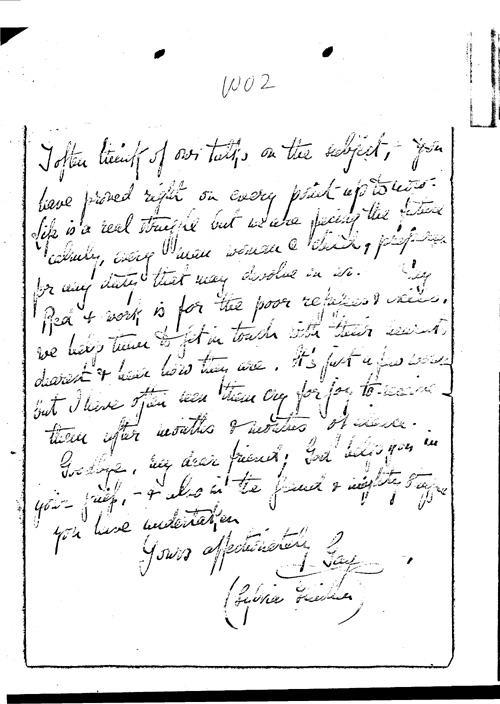 W02
I often think of our talks on the subject, - you
have proved right on every point up to now.
Life is a real struggle but we are facing the future
calmly, every man woman & child, prepared
for any duty that may devolve on us. My
Red + work is for the poor refugees &
we help them to get in touch with their nearest
dearest & hear how they are. It's just a few words
but I have often seen them cry for joy to receive
them after months & months of silence.
Goodbye, my dear friend, God help you in
your grief, - & also in the grand & mighty
you have undertaken
Yours affectionately
Gay
(Sylvia